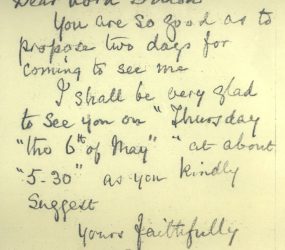 Dear Lord
You are so good as to
propose two days for
coming to see me
I shall be very glad
to see you on "Thursday
"the 6th of May" "at about
"5-30" as you kindly
suggest
Yours faithfully